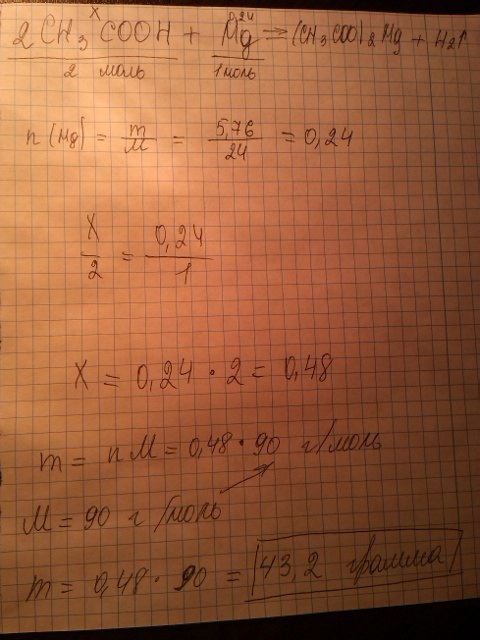 x 0,24
2 CH3 COOH + Mg = (CH3COO)2 Mg + H2↑
2 моль 1 моль
n (Mg) = m/M = 5,76/24 = 0,24
x/2 = 0,24/1
x = 0,24 · 2 = 0,48
m = n M = 0,48 · 90 г/моль
M = 90 г/моль
m = 0,48 · 90 = 43,2 грамма